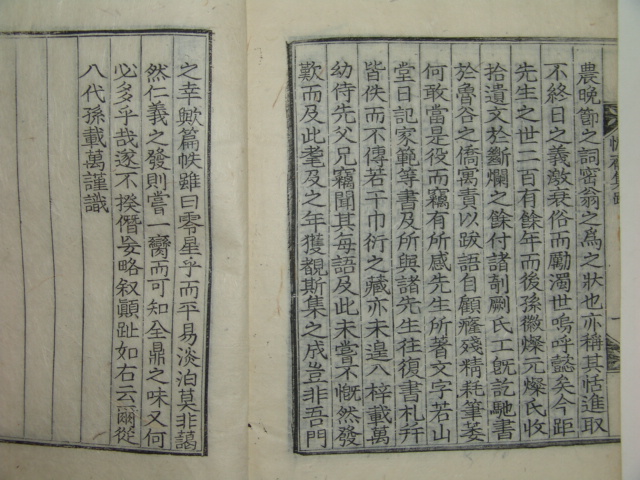 農晩節之詞密翁之爲之狀也亦稱其恬進取
不終日之義激衰俗而勵濁世嗚呼懿矣今距
先生之世二百有餘年而後孫徽燦元燦氏收
拾遺文於斷爛之餘付諸剞劂氏工旣訖馳書
於魯谷之僑寓責以跋語自顧癃殘精耗筆萎
何敢當是役而竊有所感先生所著文字若山
堂日記家範等書及所與諸先生往復書札幷
皆佚而不傳若干巾衍之藏亦未遑入梓載萬
幼侍先父兄竊聞其每語及此未嘗不慨然發
歎而及此耄及之年獲覩斯集之成豈非吾門
之幸歟篇帙雖曰零星乎而平易淡泊莫非藹
然仁義之發則嘗一臠而可知全鼎之味又何
必多乎哉遂不揆僭妄略叙顚趾如右云爾從
八代孫載萬謹識